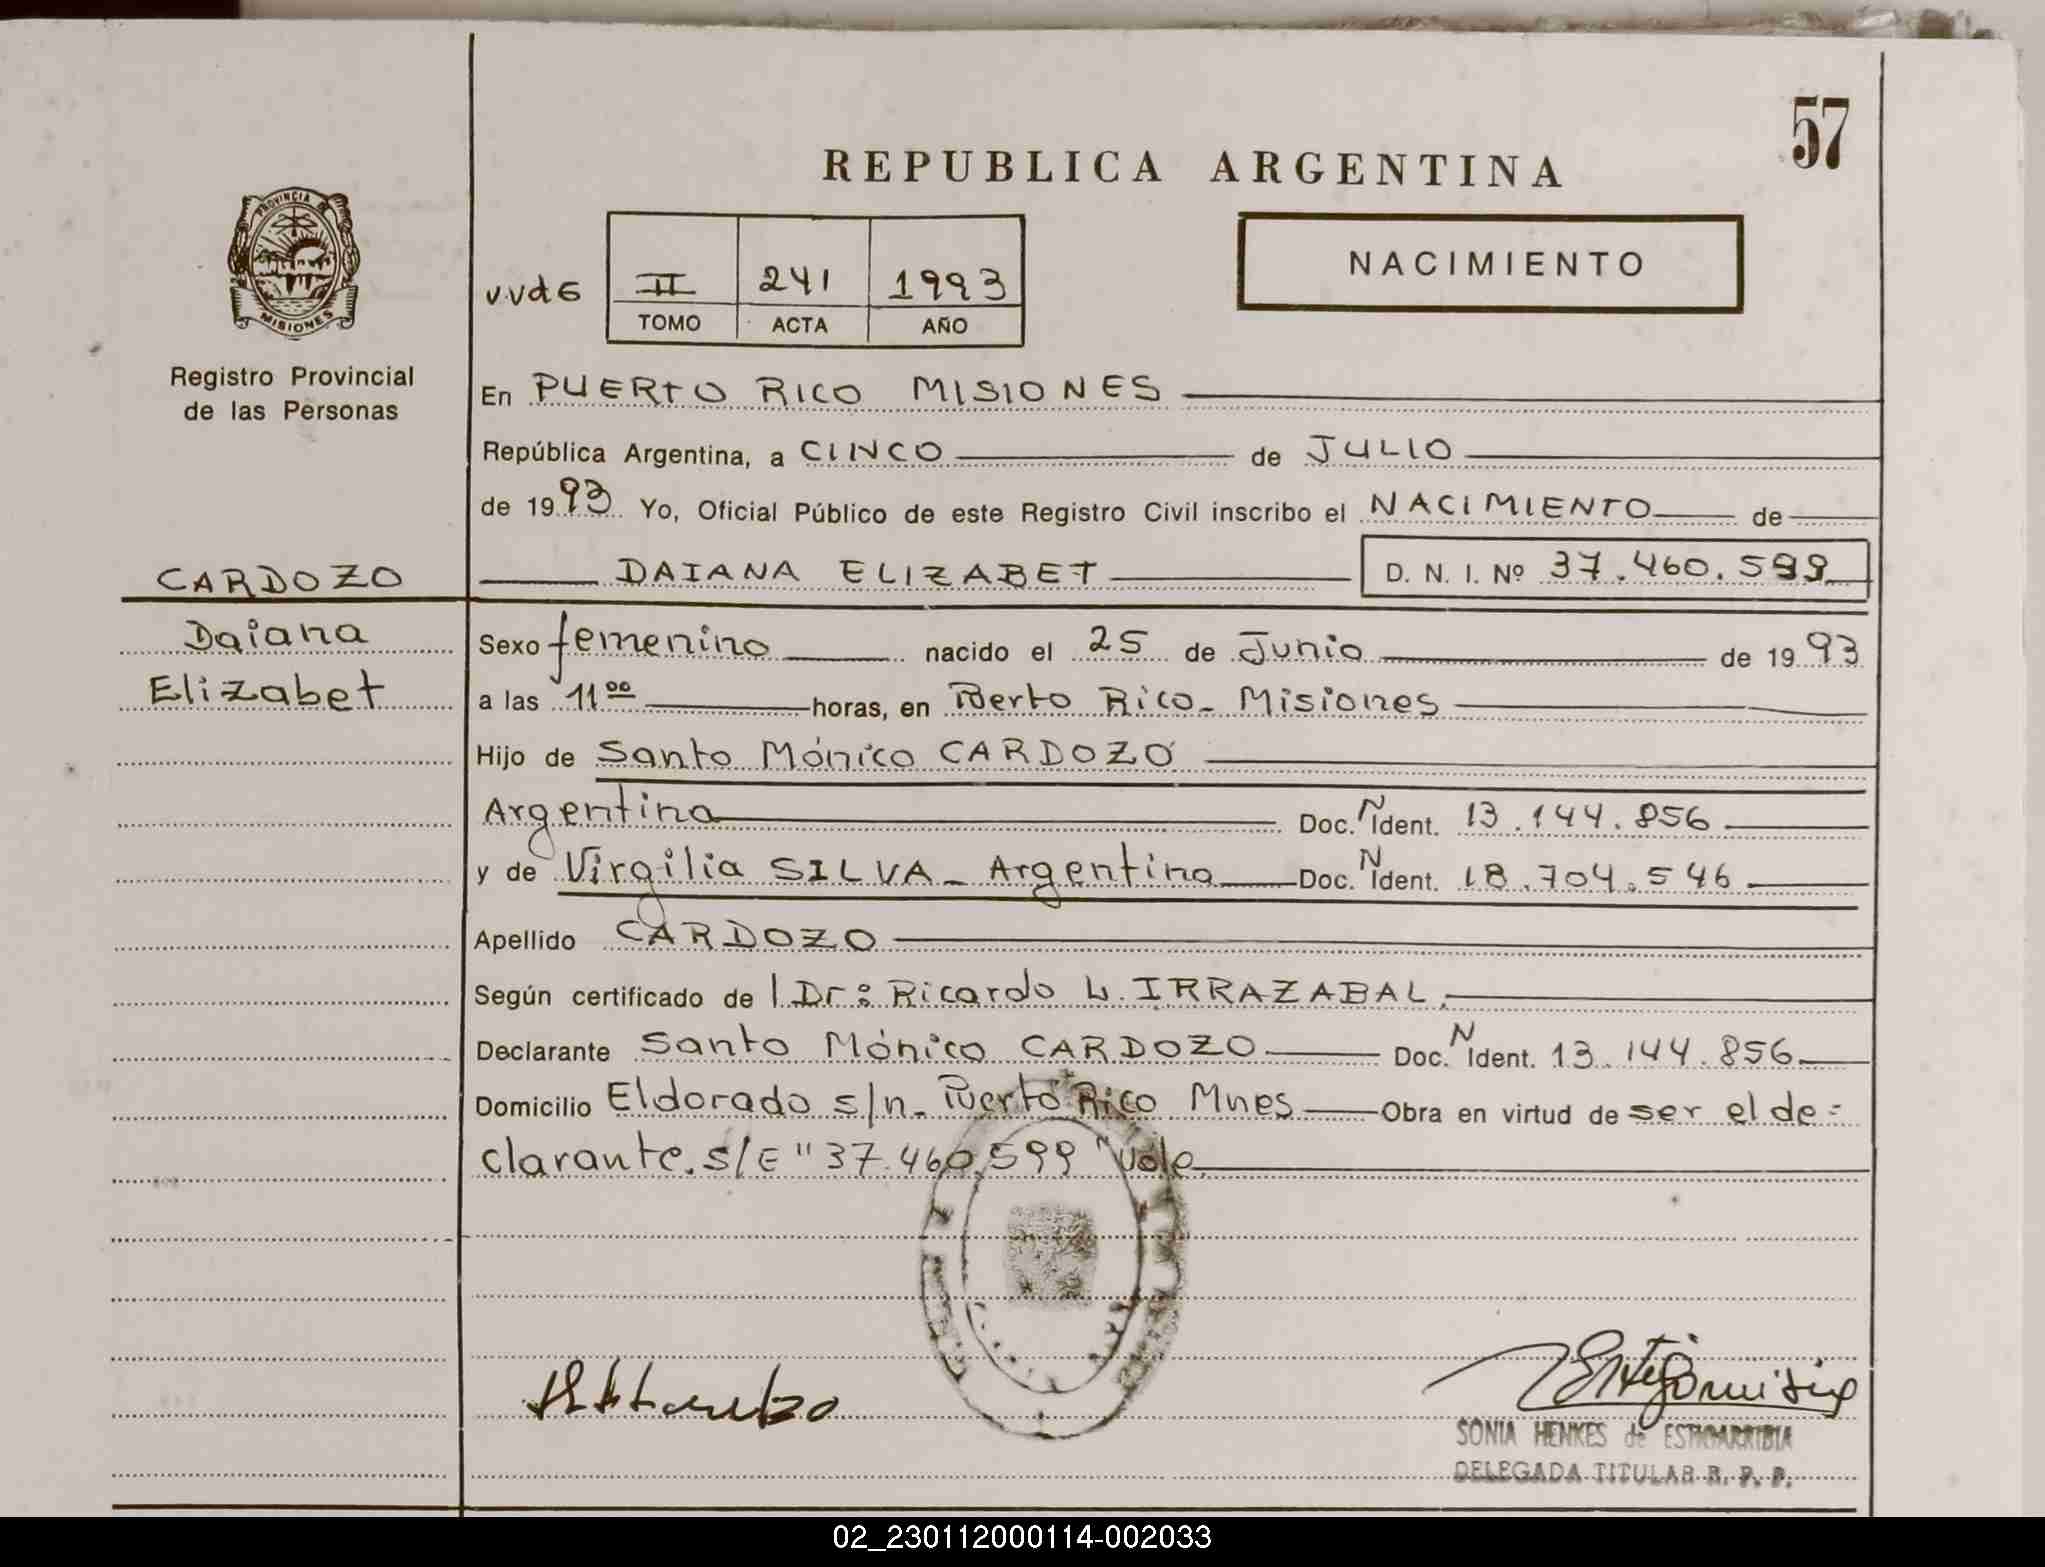 57
REPUBLICA ARGENTINA
PROVINCIA DE
MISIONES
Registro Provincial
de las Personas
v.vd6 II 241 1993
TOMO ACTA AÑO
NACIMIENTO
En PUERTO RICO MISIONES
República Argentina, a CINCO de JULIO
de 1993 Yo, Oficial Público de este Registro Civil inscribo el NACIMIENTO de
CARDOZO
DAIANA ELIZABET D. N. I. Nº 37.460.599
Daiana
Elizabet
Sexo femenino nacido el 25 de Junio de 1993
a las 11ºº horas, en Puerto Rico - Misiones
Hijo de Santo Mónico CARDOZO
Argentina Doc. N Ident. 13.144.856
y de Virgilia SILVA - Argentina Doc. N Ident. 18.704.546
Apellido CARDOZO
Según certificado de l Dr: Ricardo L. IRRAZABAL.
Declarante Santo Mónico CARDOZO Doc. N Ident. 13.144.856
Domicilio Eldorado s/n. Puerto Rico Mnes Obra en virtud de ser el de=
clarante. S/E "37.460.599" Vale.
SONIA HENKES de ESTIGARRIBIA
DELEGADA TITULAR R. P. P.
02_230112000114-002033